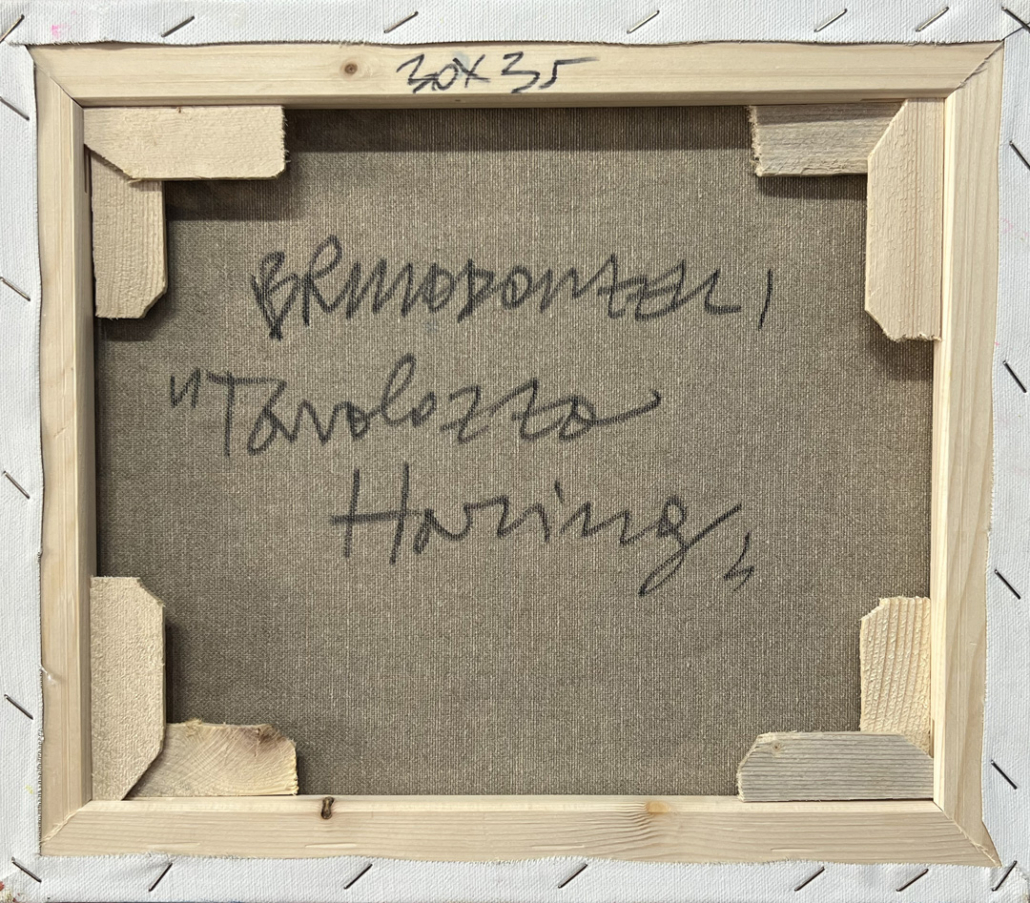 30x35
BRUNODONZELLI
"Tavolozza
Haring"